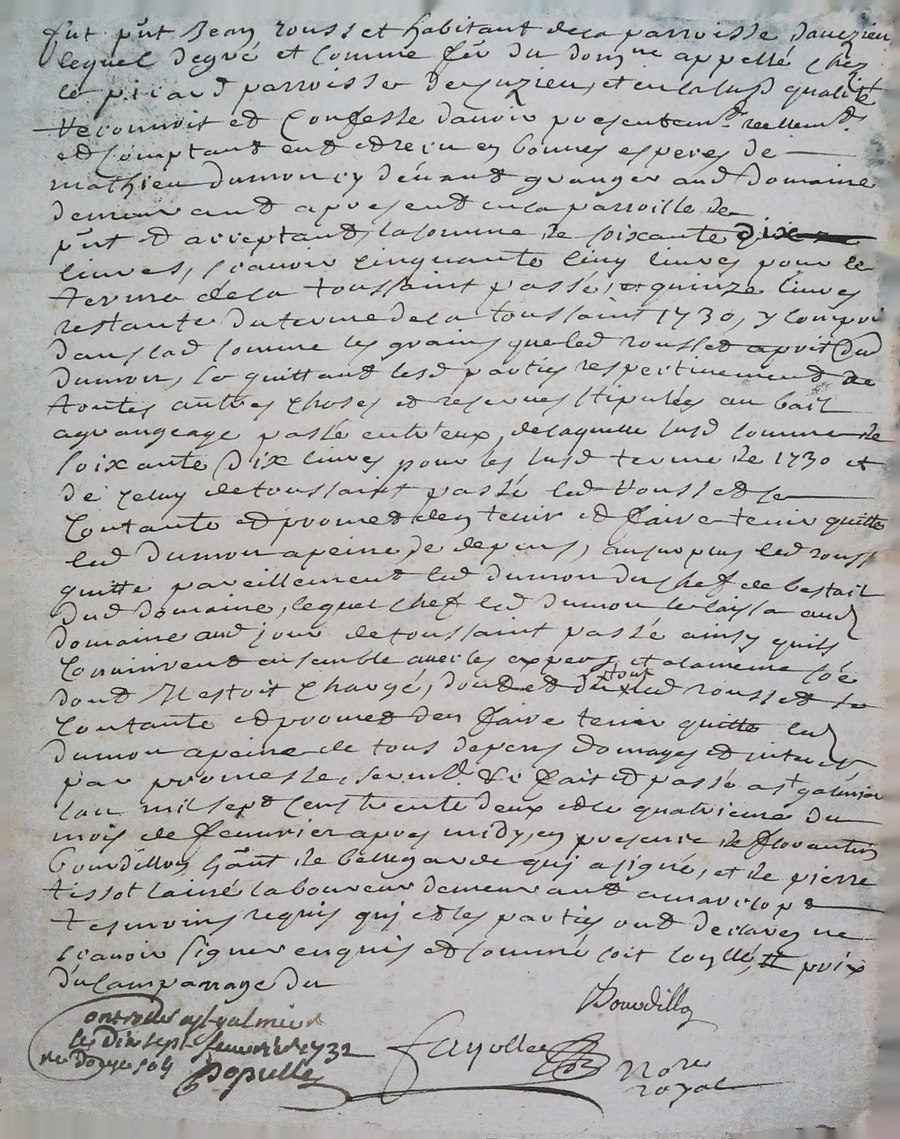 fut pnt Jean rousset habitant de la parroisse daveizieu
lequel de gré et comme fer du domne appellé chez
le picard parroisse de cuzieu, et en la susd qualité
reconnoit et confesse d'avoir presentemt reellemt
et comptant eud et receu en bonnes especes de
mathieu dumon cy devant granger aud domaine
demeurant apresent en la parroisse de
pnt et acceptant, la somme de soixante dix
livres, scavoir cinquante cinq livres pour le
terme de la toussaint passé, et quinze livres
restante du terme de la toussaint 1730, y compri
dans lad somme les grains que led rousset aprit dud
dumon, se quittant lesd parties respectivement de
toutes autres choses et reserves stipulées au bail
a grangeage passé entr'eux, de laquelle susd somme de
soixante dix livres pour les susd terme de 1730 et
de celuy de toussaint passé led rousset se
contante et promet den tenir et faire tenir quitte
led dumon a peine de depens, au surplus led rouss
quitte pareillement led dumon du chef de bestail
dud domaine, lequel chef led dumon le laissa aud
domaine aud jour de toussaint passé ainsy quils
convinrent ensemble avec les expers, et a la meme
dont Il estoit chargé, dont et du tout led rousset se
contante et promet den faire tenir quitte led
dumon a peine de tous depens domages et interets,
par promesse, serment &c fait et passé a st galmier
lan mil sept cens trente deux et le quatrieme du
mois de fevvrier apres midy, en presence de florantin
bourdillon hant de bellegarde qui a signé, et de pierre
tissot lainé laboureur demeurant a
tesmoins requis qui et les parties ont declarez ne
scavoir signer enquis et sommé soit coyllé, prix
du
Bourdillon
Controllé a st galmier
le dix sept fevvrier 1732
reçu douze sols
Popullé
fayolle
Nore
royal